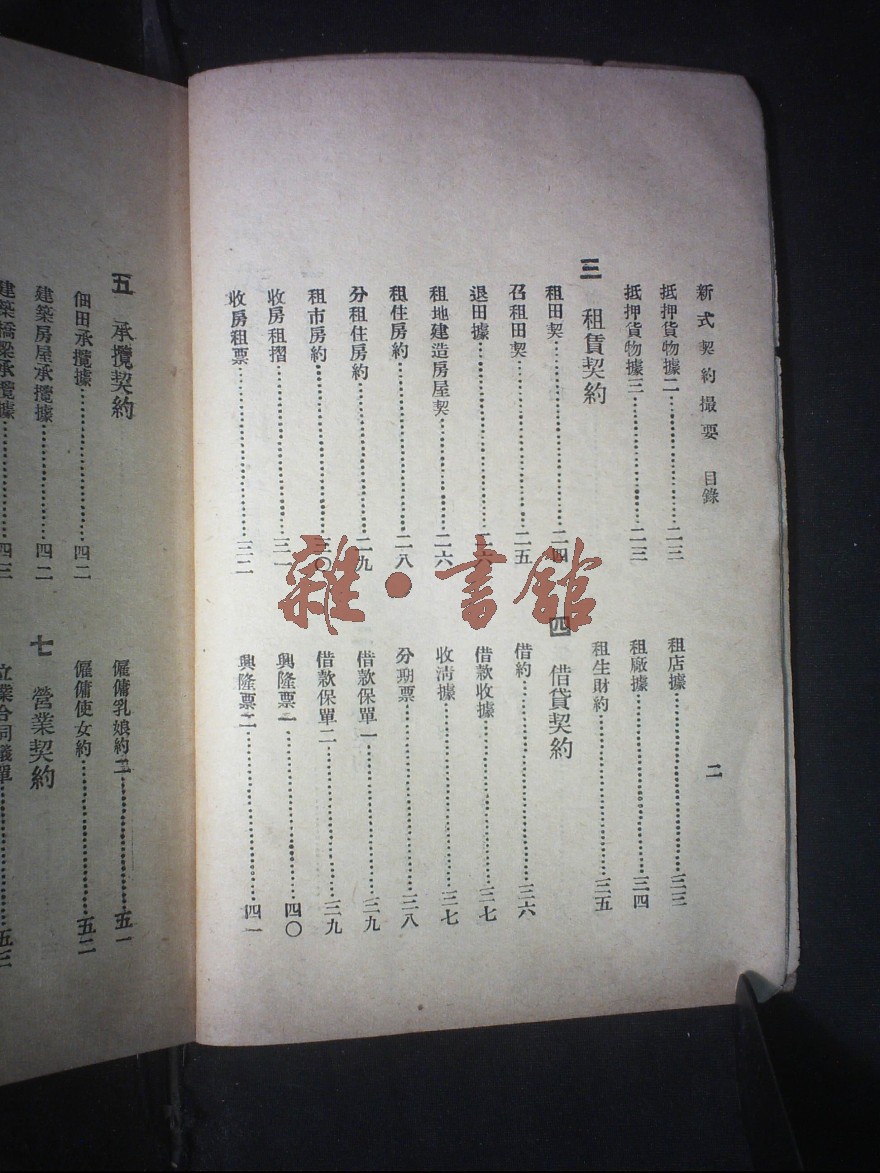 新式契約撮要 目錄
二
抵押貨物據二 二三
抵押貨物據三 二三
三 租賃契約
租田契 二四
召租田契 二五
退田據 二六
租地建造房屋契 二六
租住房約 二八
分租住房約 二九
租市房約 三〇
收房租摺 三一
收房租票 三二
租店據 三三
租廠據 三四
租生財約 三五
四 借貸契約
借約 三六
借款收據 三七
收清據 三七
分期票 三八
借款保單一 三九
借款保單二 三九
興隆票一 四〇
興隆票二 四一
五 承攬契約
佃田承攬據 四二
建築房屋承攬據 四二
建築橋梁承攬據 四三
僱傭乳娘約二 五一
僱傭使女約 五二
七 營業契約
立業合同議單 五三
雜·書館